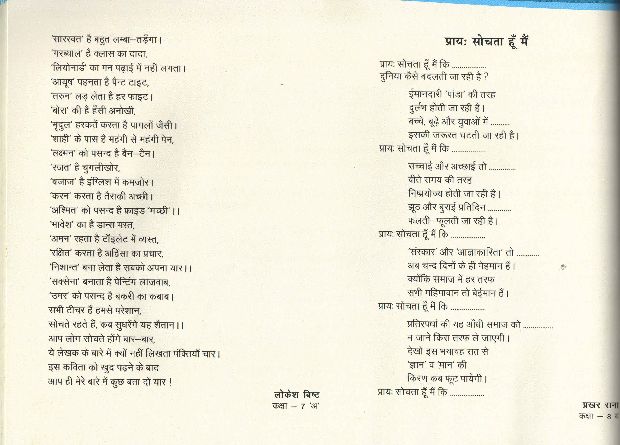 'सारस्वत' है बहुत लम्बा–तड़ंगा।
'गरब्याल' है क्लास का दादा,
'लियोनार्ड' का मन पढ़ाई में नहीं लगता।
'आयुष' पहनता है पैन्ट टाइट,
'तरुन' लड़ लेता है हर फाइट।
'बोरा' की है हँसी अनोखी,
'मृदुल' हरकतें करता है पागलों जैसी।
'शाही' के पास है महंगी से महंगी पेन,
'लक्ष्मन' को पसन्द है बैन–टैन।
'रजत' है चुगलीखोर,
'बजाज' है इंग्लिश में कमजोर।
'करन' करता है तैराकी अच्छी।
'अश्मित' को पसन्द है फ्राइड 'मच्छी'।।
'भावेश' का है डान्स मस्त,
'अमन' रहता है टॉइलेट में व्यस्त,
'रक्षित' करता है अहिंसा का प्रचार,
'निशान्त' बना लेता है सबको अपना यार।।
'सक्सेना' बनाता है पेन्टिंग लाजवाब,
'उमर' को पसन्द है बकरी का कबाब।
सभी टीचर हैं हमसे परेशान,
सोचते रहते हैं, कब सुधरेंगे यह शैतान।।
आप लोग सोचते होंगे बार–बार,
ये लेखक के बारे में क्यों नहीं लिखता पंक्तियाँ चार।
इस कविता को खुद पढ़ने के बाद
आप ही मेरे बारे में कुछ बता दो यार !
लोकेश बिष्ट
कक्षा – 7 'अ'
प्रायः सोचता हूँ मैं
प्रायः सोचता हूँ मैं कि ..............
दुनिया कैसे बदलती जा रही है ?
ईमानदारी 'पांडा' की तरह
दुर्लभ होती जा रही है।
बच्चे, बूढ़े और युवाओं में .........
इसकी जरूरत घटती जा रही है।
प्रायः सोचता हूँ मैं कि ..............
सच्चाई और अच्छाई तो ............
बीते समय की तरह
निष्प्रयोज्य होती जा रही है।
झूठ और बुराई प्रतिदिन ...........
फलती–फूलती जा रही है।
प्रायः सोचता हूँ मैं कि ..............
'संस्कार' और 'आज्ञाकारिता' तो ..........
अब चन्द दिनों के ही मेहमान हैं।
क्योंकि समाज में हर तरफ
सभी महिमावान तो बेईमान हैं।
प्रायः सोचता हूँ मैं कि ..............
प्रतिस्पर्धा की यह आँधी समाज को ..............
न जाने किस तरफ ले जाएगी।
देखो इस भयावह रात से
'ज्ञान' व 'मान' की
किरण कब फूट पायेगी।
प्रायः सोचता हूँ मैं कि ..............
प्रखर राना
कक्षा – 8